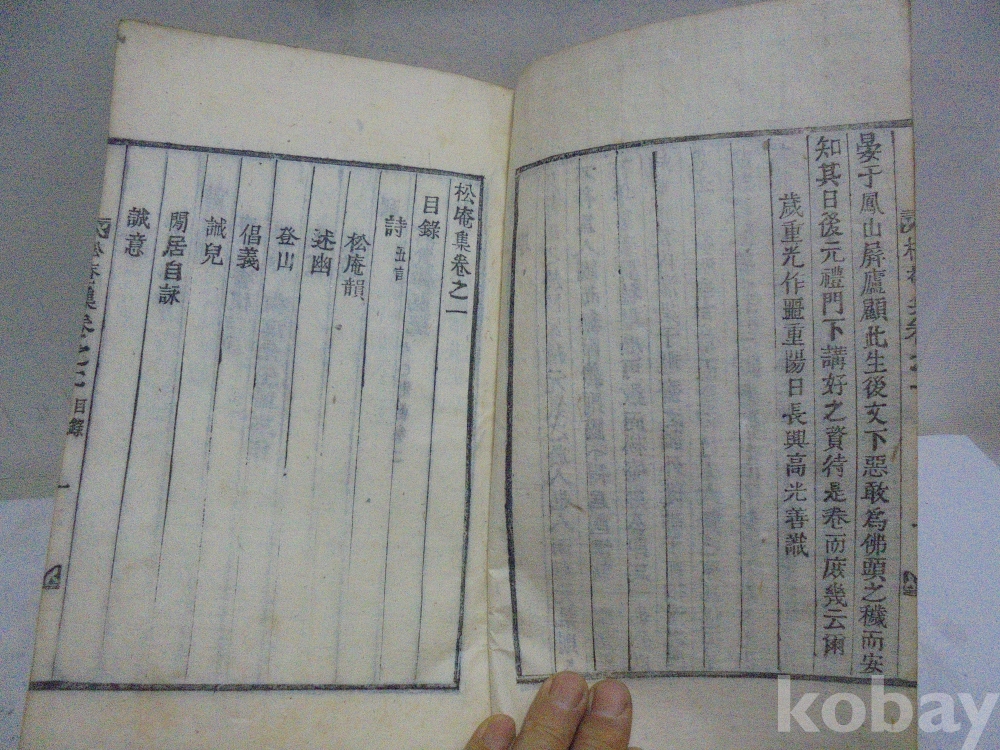 晏于鳳山屛廬顧此生後文下惡敢爲佛頭之穢而安
知其日後元禮門下講好之資待是卷而庶幾云爾
歲重光作噩重陽日長興高光善識
松庵集卷之一
目錄
詩 五言
松庵韻
述幽
登山
倡義
誡兒
閒居自詠
誠意
松庵集卷之一 目錄 一
kobay